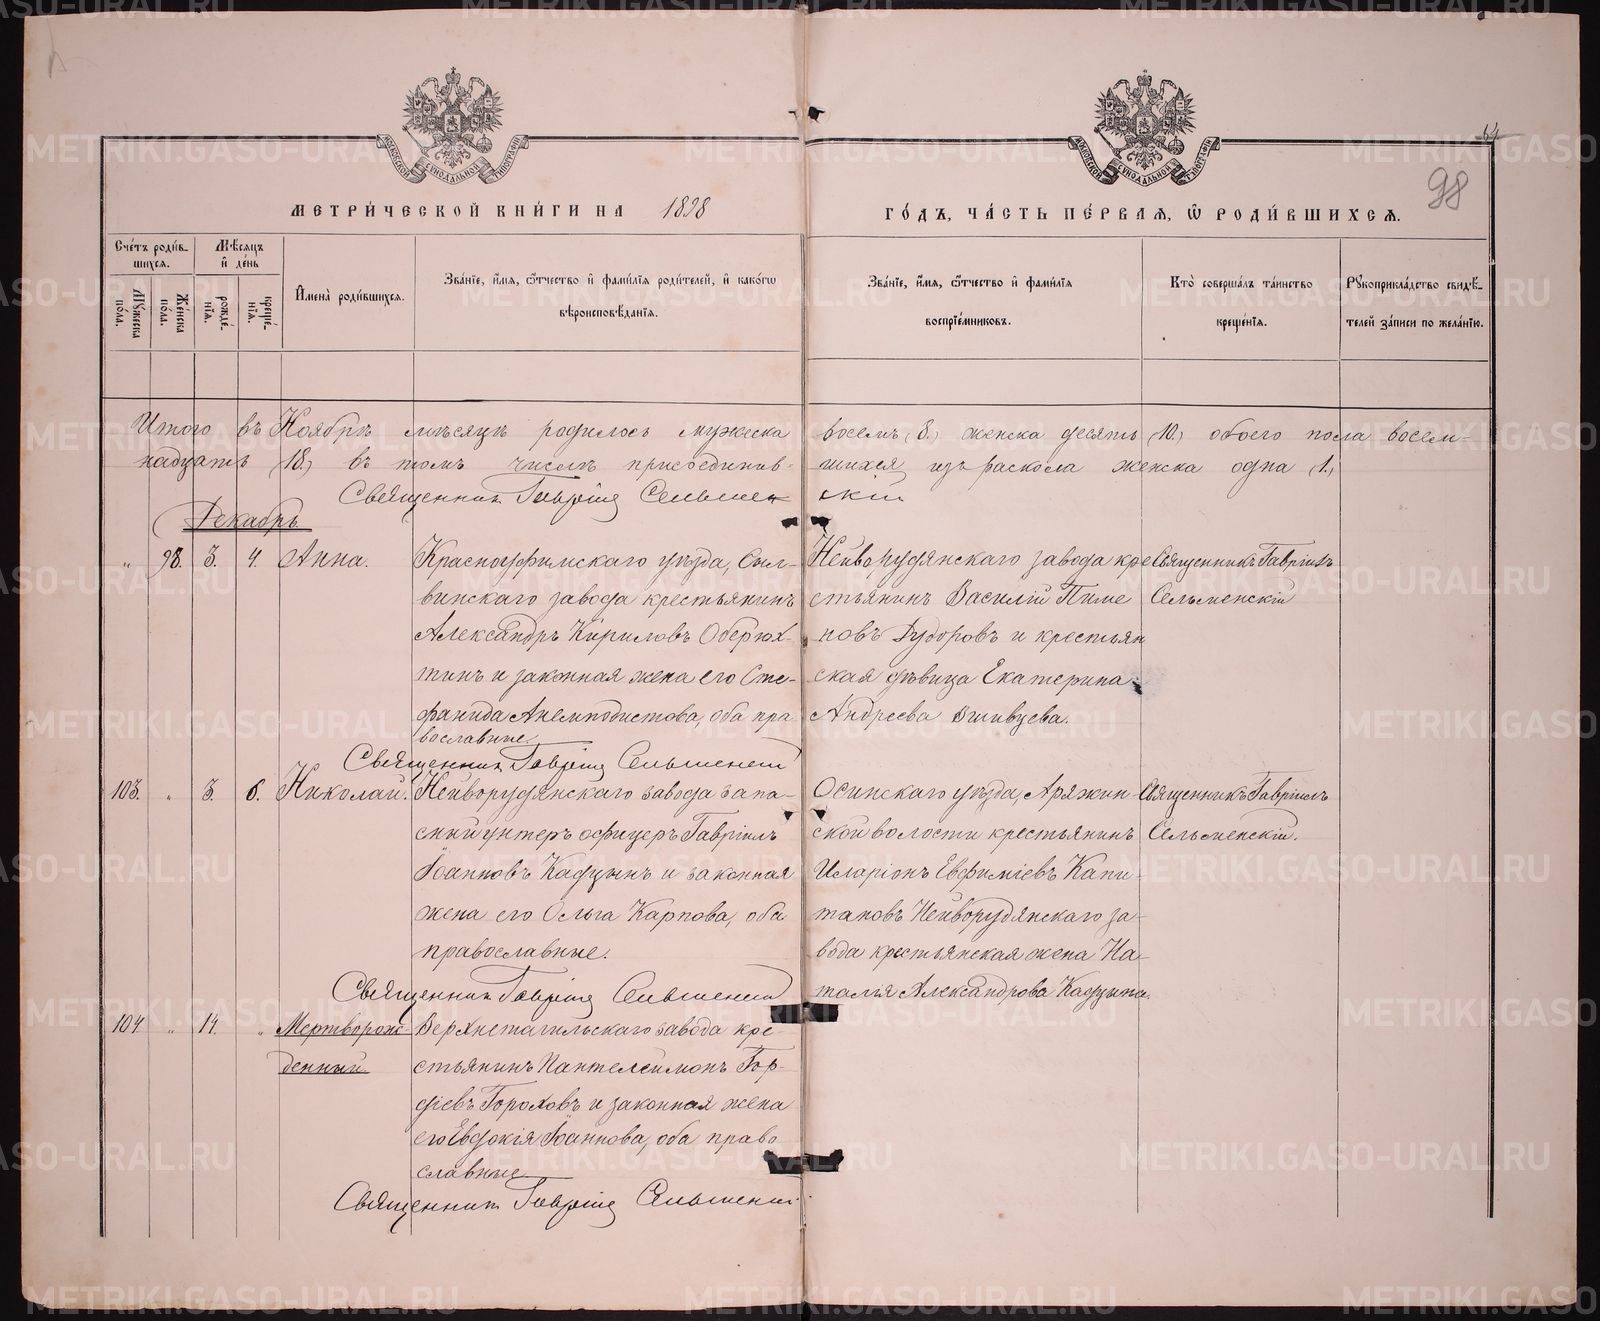 64
98
МОСКОВСКОЙ СѴНОДАЛЬНОЙ ТИПОГРАФІИ
МОСКОВСКОЙ СѴНОДАЛЬНОЙ ТИПОГРАФІИ
МЕТРИ́ЧЕСКОЙ КНИ́ГИ НА 1898 ГО́ДЪ, ЧА́СТЬ ПЕ́РВАѦ, Ѡ РОДИ́ВШИХСѦ.
Сче́тъ роди́в-
шихсѧ.
Мꙋ́жеска по́ла.
Же́нска по́ла.
Мѣ́сѧцъ и де́нь
рожде́нїѧ.
креще́нїѧ.
И́мена̀ роди́вшихсѧ.
Зва́нїе, и́мѧ, ѻ́тчество и фами́лїѧ роди́телей, и како́гѡ
вѣроисповѣ́данїѧ.
Зва́нїе, и́мѧ, ѻ́тчество и фами́лїѧ
воспрїе́мниковъ.
Кто̀ соверша́лъ та́инство
креще́нїѧ.
Рꙋкоприкла́дство свидѣ́-
телей за́писи по жела́нїю.
Итого въ Ноябрѣ мѣсяцѣ родилось мужеска восемь (8.) женска десять (10.) обоего пола восем-
надцать (18.) въ томъ числѣ присоединив- шихся изъ раскола женска одна (1.)
Священникъ Гавріилъ Сельменскій
Декабрь
" 98. 3. 4. Анна.
Красноуфимскаго уѣзда, Сыл-
винскаго завода крестьянинъ
Александръ Кириловъ Оберюх-
тинъ и законная жена его Сте-
фанида Анемподистова, оба пра-
вославные.
Нейворудянскаго завода кре-
стьянинъ Василій Пиме
новъ Дудоровъ и крестьян
ская дѣвица Екатерина
Андреева Вшивцева.
Священникъ Гавріилъ
Сельменскій
Священникъ Гавріилъ Сельменскій
103. " 3. 6. Николай.
Нейворудянскаго завода запа-
сный унтеръ офицеръ Гавріилъ
Іоанновъ Кадцынъ и законная
жена его Ольга Карпова, оба
православные.
Осинскаго уѣзда, Аряжин-
ской волости крестьянинъ
Иларіонъ Евфиміевъ Капи-
тановъ Нейворудянскаго за-
вода крестьянская жена На-
талья Александрова Кадцына.
Священникъ Гавріилъ
Сельменскій.
Священникъ Гавріилъ Сельменскій
104 " 14. " Мертворож-
денный
Верхнетагильскаго завода кре
стьянинъ Пантелеимонъ Гор-
діевъ Гороховъ и законная жена
его Евдокія Іоаннова, оба право
славные
Священникъ Гавріилъ Сельменскій
METRIKI.GASO-URAL.RU